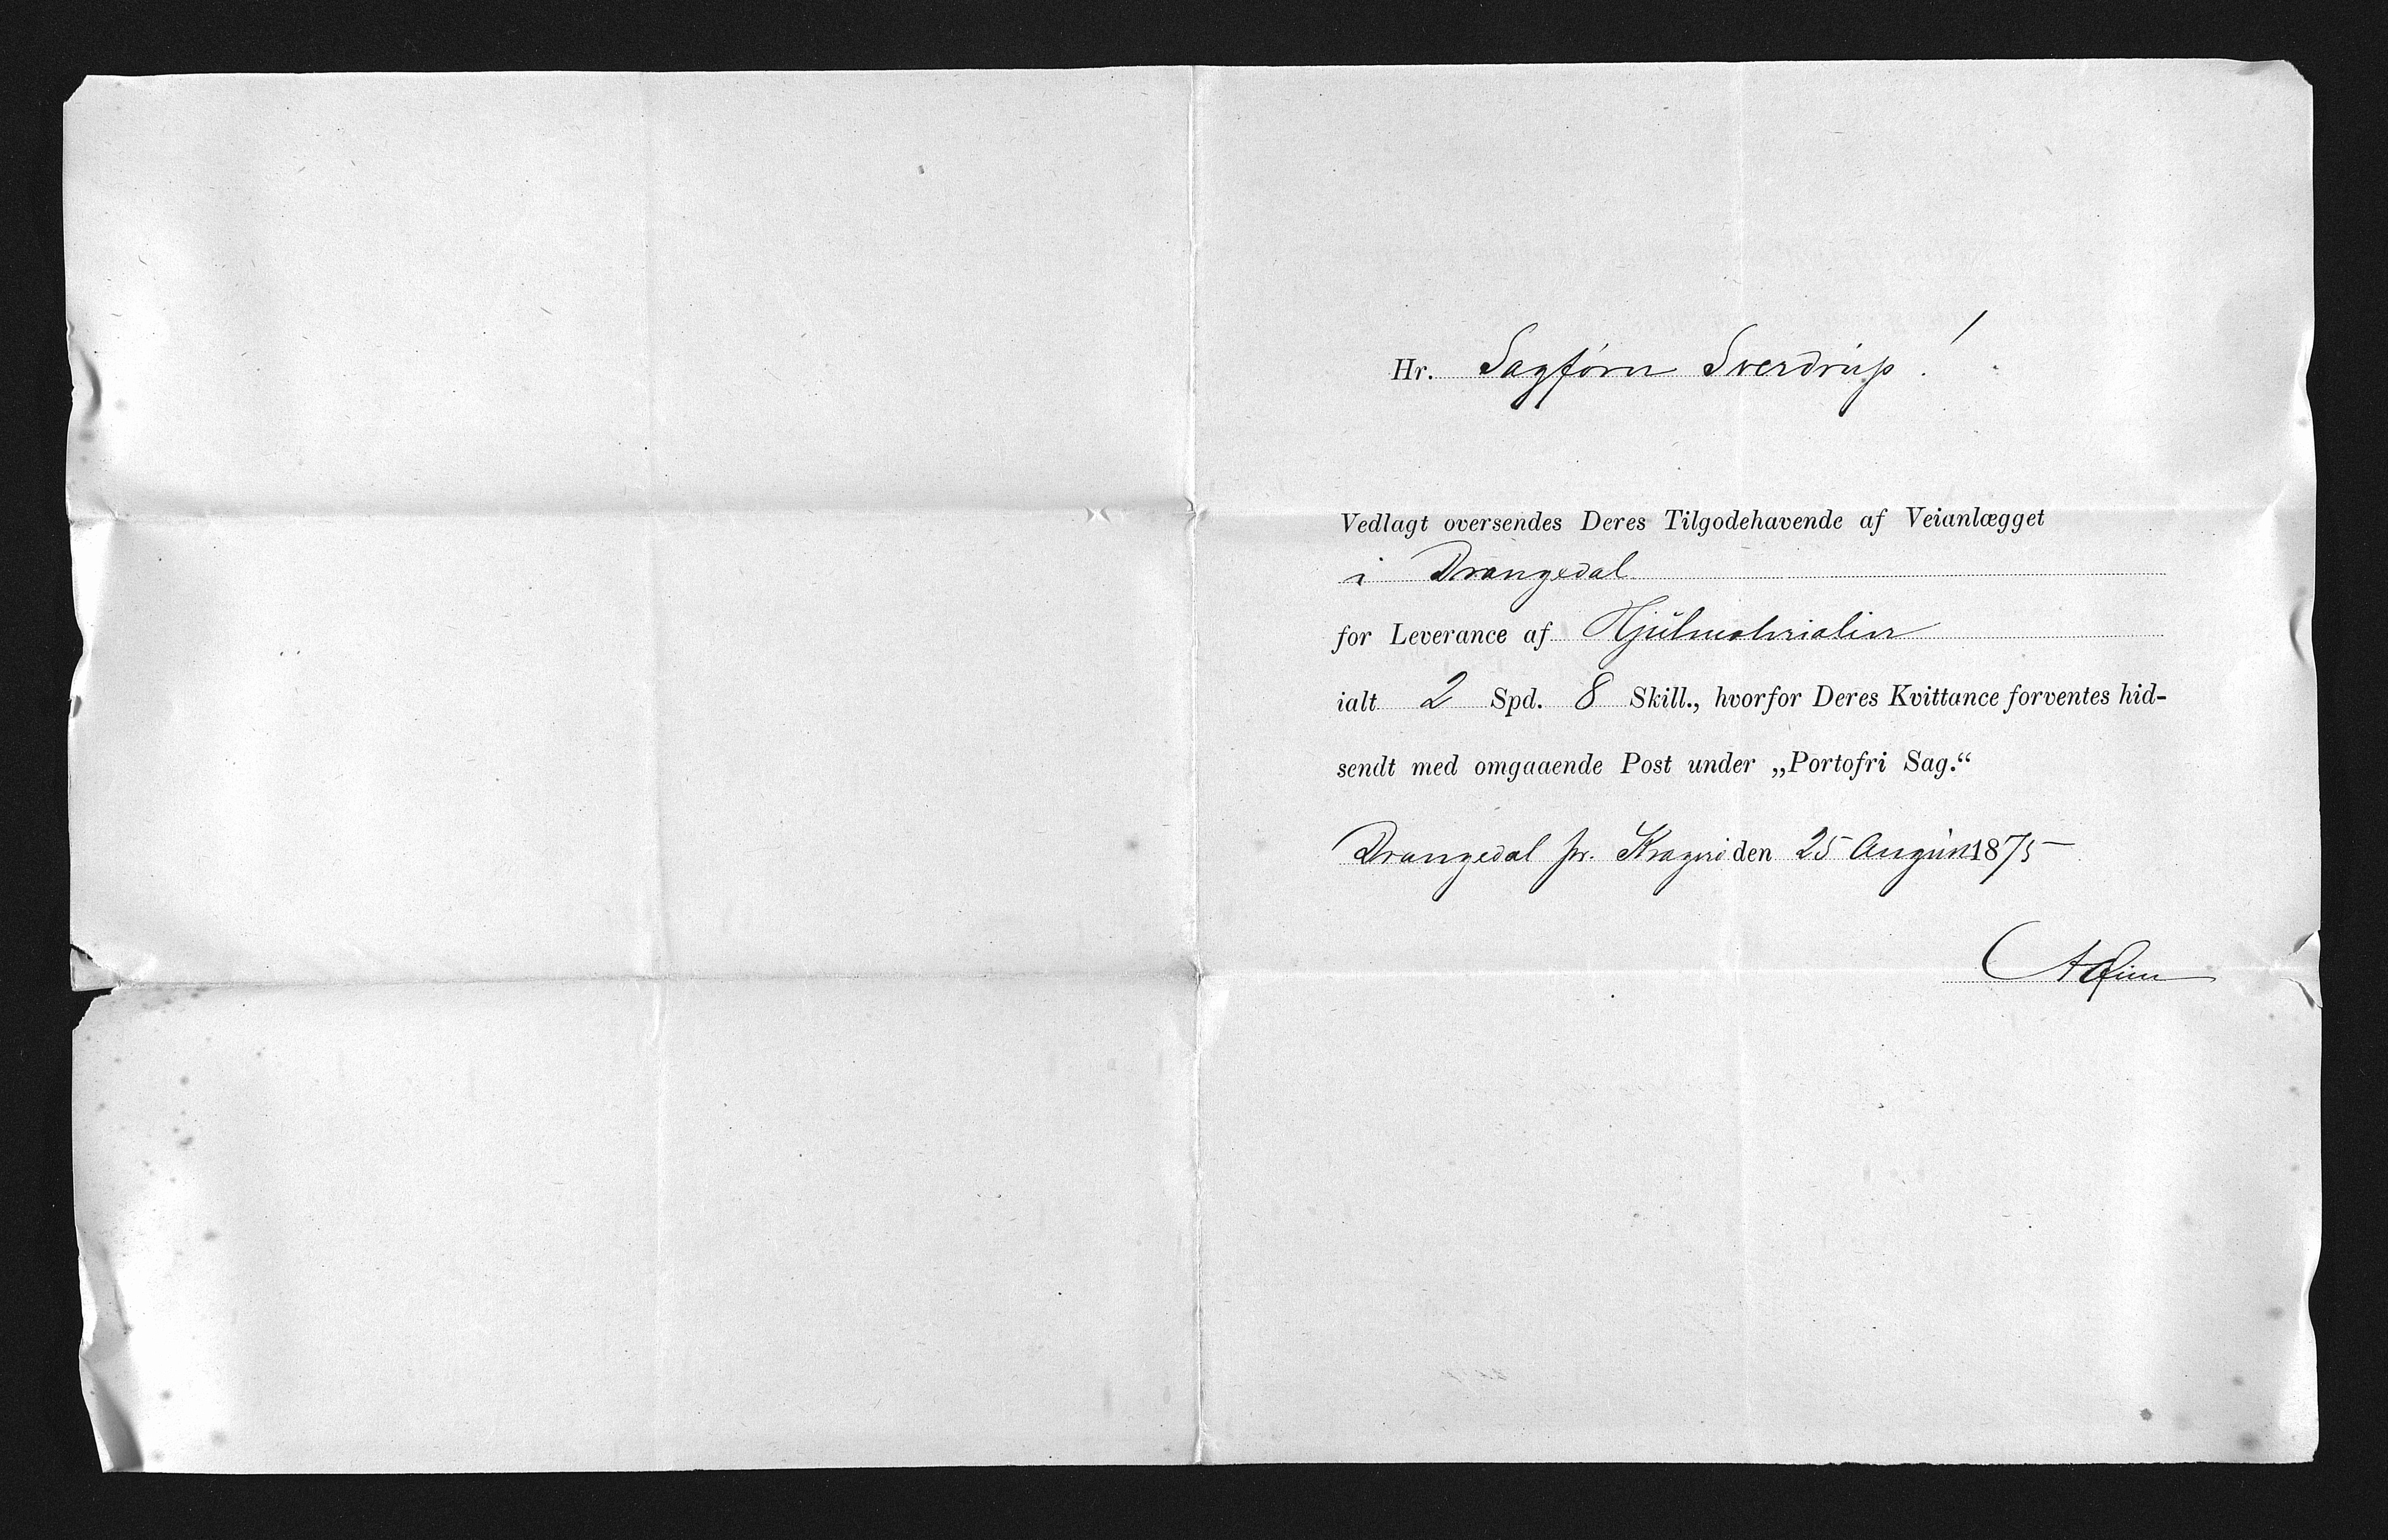 Hr. Sagfører Sverdrup!
Vedlagt oversendes Deres Tilgodehavende af Veianlægget
i Drangedal
for Leverance af Hjulmaterialier
ialt 2 Spd. 8 Skill., hvorfor Deres Kvittance forventes hid-
sendt med omgaaende Post under „Portofri Sag.“
Drangedal pr. Kragerø den 25 August 1875